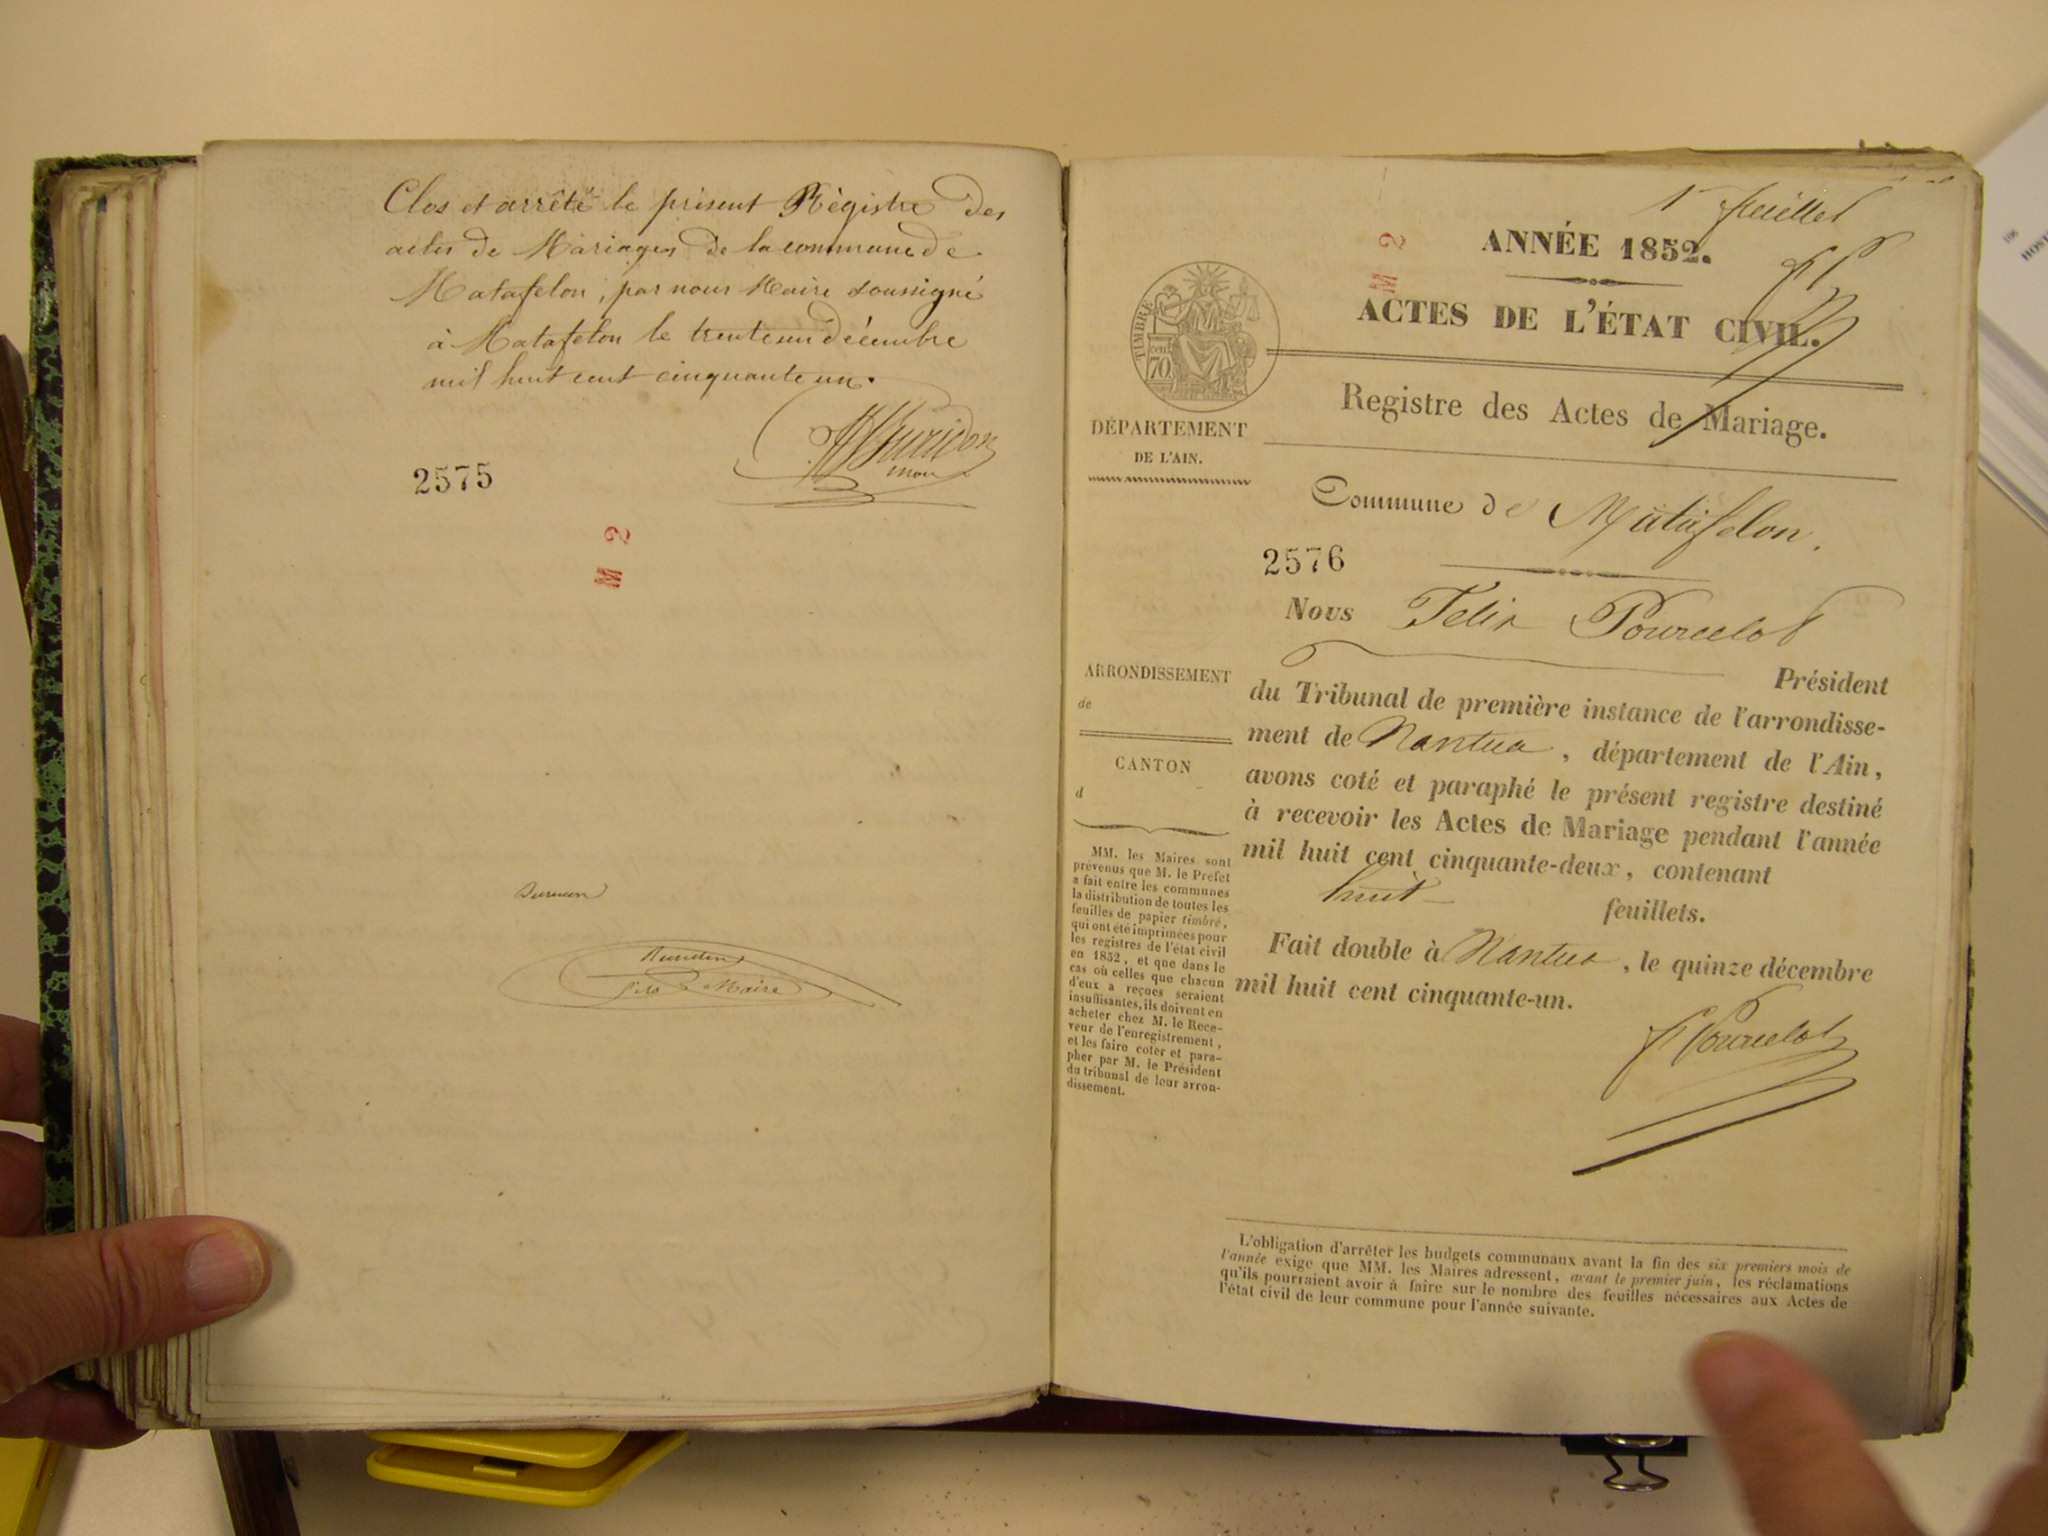 Clos et arrêté le présent Règistre des
actes de Mariages de la commune de
Matafelon, par nous Maire soussigné
à Matafelon le trente un décembre
mil huit cent cinquante un.
2575
M 2
Maire
1r feuillet
M 2
ANNÉE 1852.
ACTES DE L'ÉTAT CIVIL.
TIMBRE
70 cent
Registre des Actes de Mariage.
DÉPARTEMENT
DE L'AIN.
Commune de Matafelon.
2576
Nous Felix Pourcelot
Président
du Tribunal de première instance de l'arrondisse-
ment de Nantua, département de l'Ain,
avons coté et paraphé le présent registre destiné
à recevoir les Actes de Mariage pendant l'année
mil huit cent cinquante-deux, contenant
huit feuillets.
Fait double à Nantua, le quinze décembre
mil huit cent cinquante-un.
F Pourcelot
ARRONDISSEMENT
de
CANTON
d
MM. les Maires sont
prévenus que M. le Préfet
a fait entre les communes
la distribution de toutes les
feuilles de papier timbré,
qui ont été imprimées pour
les registres de l'état civil
en 1852, et que dans le
cas où celles que chacun
d'eux a reçues seraient
insuffisantes, ils doivent en
acheter chez M. le Rece-
veur de l'enregistrement,
et les faire coter et para-
pher par M. le Président
du tribunal de leur arron-
dissement.
L'obligation d'arrêter les budgets communaux avant la fin des six premiers mois de
l'année exige que MM. les Maires adressent, avant le premier juin, les réclamations
qu'ils pourraient avoir à faire sur le nombre des feuilles nécessaires aux Actes de
l'état civil de leur commune pour l'année suivante.